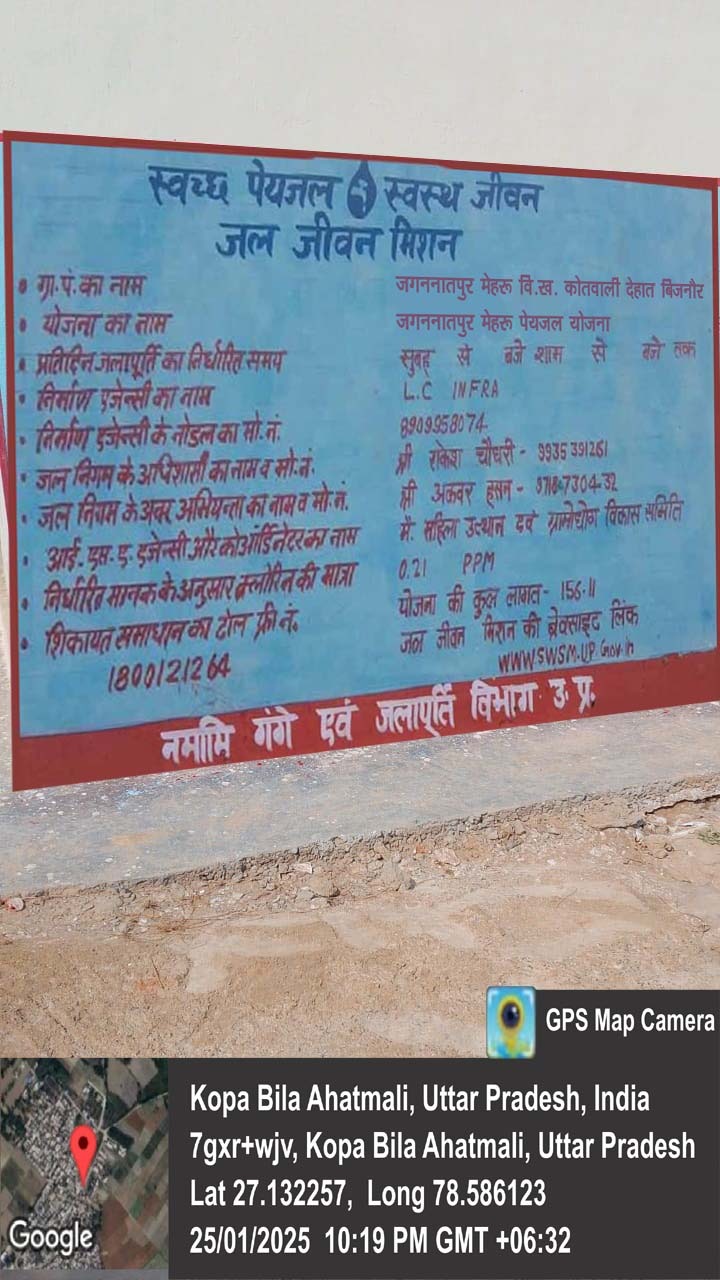 स्वच्छ पेयजल स्वस्थ जीवन
जल जीवन मिशन
• ग्रा.पं.का नाम जगननातपुर मेहरू वि.ख. कोतवाली देहात बिजनौर
• योजना का नाम जगननातपुर मेहरू पेयजल योजना
• प्रतिदिन जलापूर्ति का निर्धारित समय सुबह से बजे शाम से बजे तक
• निर्माण एजेन्सी का नाम L.C INFRA
• निर्माण एजेन्सी के नोडल का मो.नं. 8909958074
• जल निगम के अधिशासी का नाम व मो.नं. श्री राकेश चौधरी - 9935391261
• जल निगम के अवर अभियन्ता का नाम व मो.नं. श्री अकबर हसन - 97187304-32
• आई.एस.ए. एजेन्सी और कोऑर्डिनेटर का नाम मै. महिला उत्थान एवं ग्रामोद्योग विकास समिति
• निर्धारित मानक के अनुसार क्लोरिन की मात्रा 0.21 PPM
• शिकायत समाधान का टोल फ्री नं. योजना की कुल लागत - 156.11
1800121264 जन जीवन मिशन की बेवसाइट लिंक
WWW.SWSM.UP.Gov.in
नमामि गंगे एवं जलापूर्ति विभाग उ.प्र.
GPS Map Camera
Kopa Bila Ahatmali, Uttar Pradesh, India
7gxr+wjv, Kopa Bila Ahatmali, Uttar Pradesh
Lat 27.132257, Long 78.586123
25/01/2025 10:19 PM GMT +06:32
Google